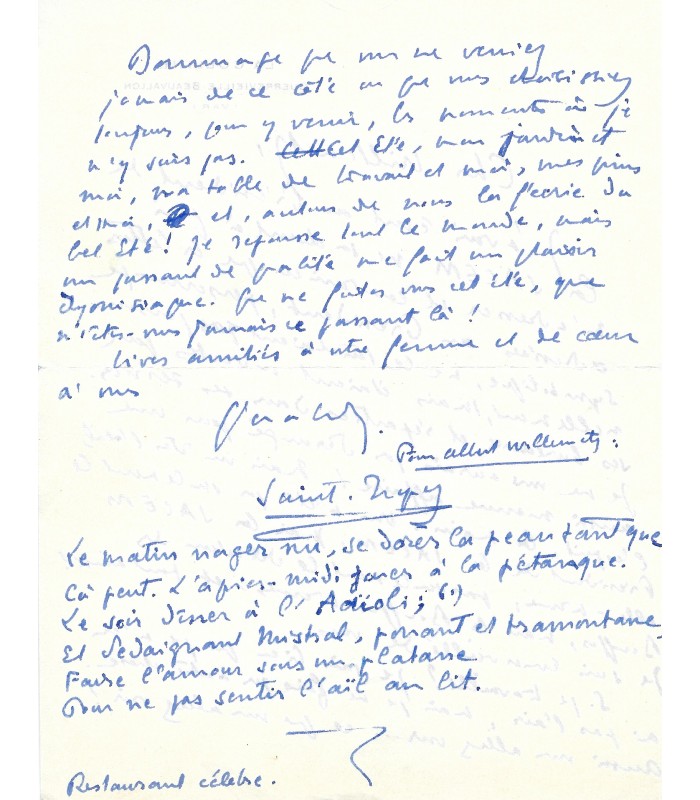 Dommage que vous ne veniez
jamais de ce côté ou que vous choisissiez
toujours, pour y venir, les moments où je
n'y suis pas. Cet Eté, mon jardin et
moi, ma table de travail et moi, mes pins
et moi, et, autour de nous la féerie du
bel Eté! Je repousse tout le monde, mais
un passant de qualité me fait un plaisir
dyonisiaque. Que ne fûtes vous cet été, que
n'êtes-vous jamais ce passant là!
Vives amitiés à votre femme et de cœur
à vous
Pour Albert Willemetz:
Saint-Tropez
Le matin nager nu, se dorer la peau tant que
Ça peut. L'après-midi jouer à la pétanque.
Le soir dîner à l'Aïoli; (1)
Et dédaignant Mistral, ponant et tramontane,
Faire l'amour sous un platane
Pour ne pas sentir l'aïl au lit.
Restaurant célèbre.